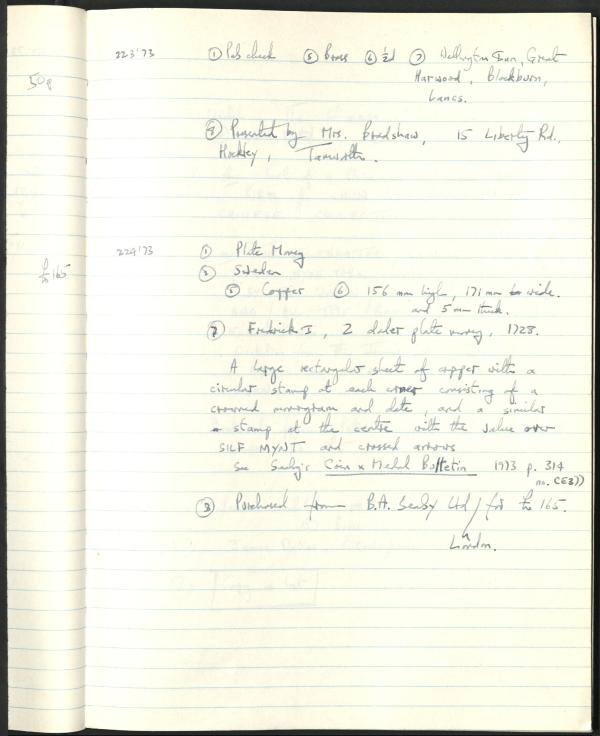 223'73 ① Pub check ⑤ Brass ⑥ ½d ⑦ Wellington Inn, Great
Harwood, Blackburn,
Lancs.
50p
⑧ Presented by Mrs. Bradshaw, 15 Liberty Rd.,
Hockley, Tamworth.
224'73 ① Plate Money
£165
② Sweden
⑤ Copper ⑥ 156 mm high, 171 mm wide.
and 5 mm thick.
⑦ Frederick I, 2 daler plate money, 1728.
A large rectangular sheet of copper with a
circular stamp at each corner consisting of a
crowned monogram and date, and a similar
stamp at the centre with the value over
SILF MYNT and crossed arrows
See Seaby's Coin & Medal Bulletin 1973 p. 314
no. CE3))
⑧ Purchased from B.A. Seaby Ltd / for £165.
London.